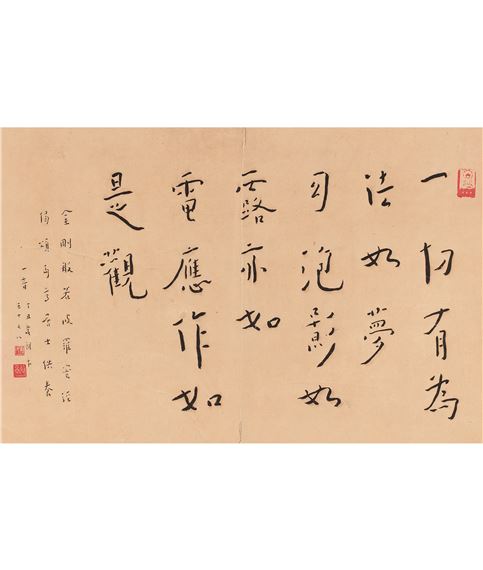 一切有為
法如夢
幻泡影如
露亦如
電應作如
是觀
金剛般若波羅蜜經
偈頌居士供養
一音
丁丑